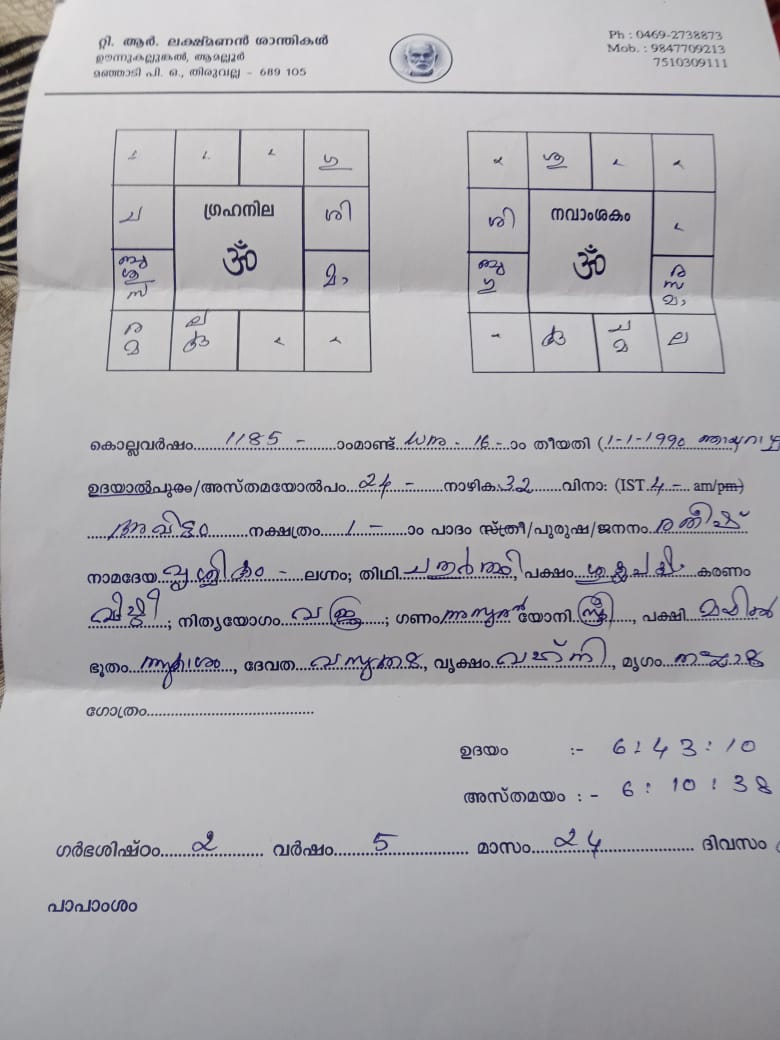 റ്റി. ആർ. ലക്ഷ്മണൻ ശാന്തികൾ
ഊന്നുകല്ലുങ്കൽ, ആമല്ലൂർ
മഞ്ഞാടി പി. ഒ., തിരുവല്ല - 689 105
Ph : 0469-2738873
Mob. : 9847709213
7510309111
ഗ്രഹനില
ച
ശി
മാ
ॐ
നവാംശകം
ശി
ॐ
കൊല്ലവർഷം 1185 - ാംമാണ്ട് ധനു - 16 - ാം തീയതി (1-1-1990
ഉദയാൽപുരം/അസ്തമയാൽപം 24 - നാഴിക 32 വിനാ: (IST 4 - am/pm)
അവിട്ടം നക്ഷത്രം 1 - ാം പാദം സ്ത്രീ/പുരുഷ/ജനനം രതീഷ്
നാമദേയ വൃശ്ചികം - ലഗ്നം; തിഥി ചതുർത്ഥി, പക്ഷം ശുക്ലപക്ഷം കരണം
വിഷ്ടി ; നിത്യയോഗം വജ്ര ; ഗണം അസുരൻ യോനി സ്ത്രീ , പക്ഷി മയിൽ
ഭൂതം ആകാശം , ദേവത വസുക്കൾ , വൃക്ഷം വഹ്നി , മൃഗം
ഗോത്രം
ഉദയം :- 6 : 43 : 10
അസ്തമയം : - 6 : 10 : 38
ഗർഭശിഷ്ഠം 2 വർഷം 5 മാസം 24 ദിവസം
പാപാംശം